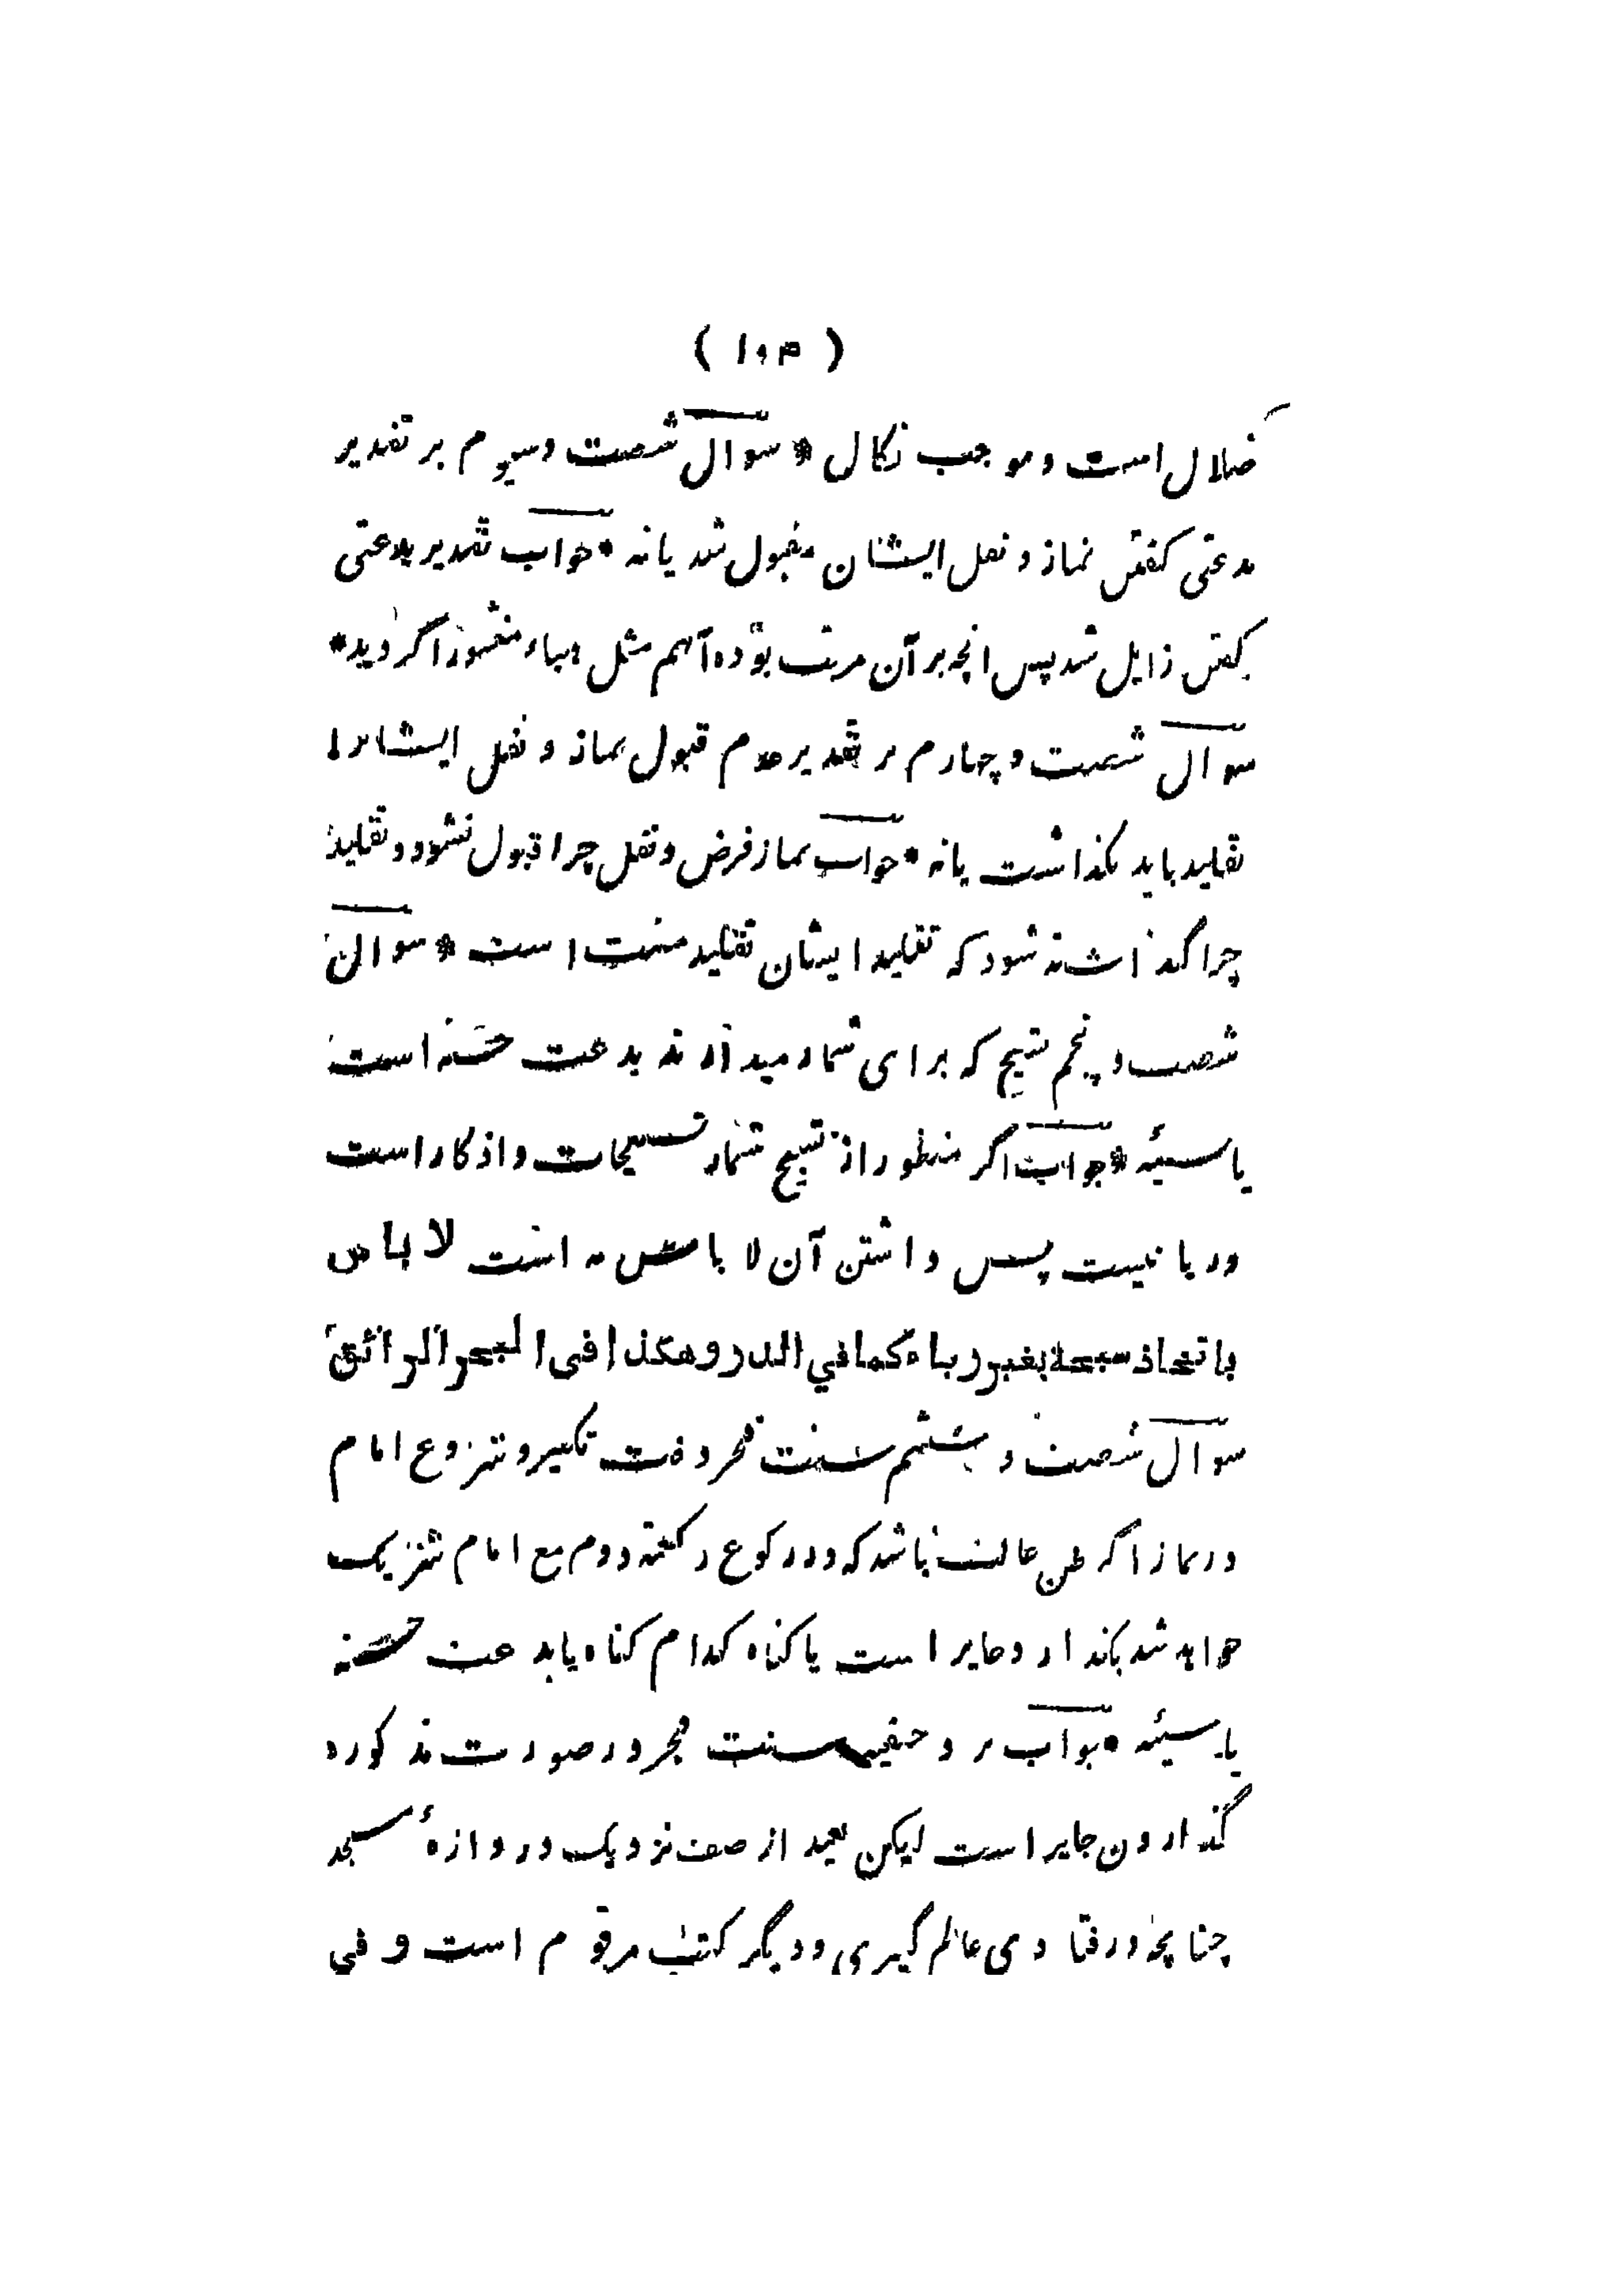 ( ۱۰۳ )
ضلال است و موجب نکال * سوال شصت و سیوم بر تقدیر
بدعتی گفتن نماز و نفل ایشان مقبول شد یا نه * جواب تقدیر بدعتی
گفتن زایل شد پس انچه بر آن مرتب بوده آنهم مثل هباء منثورا گردید *
سوال شصت و چهارم بر تقدیر عدم قبول نماز و نفل ایشانرا
تقلید باید گذاشت یا نه * جواب نماز فرض و نفل چرا قبول نشود و تقلید
چرا گذاشته شود که تقلید ایشان تقلید سنت است * سوال
شصت و پنجم تسبیح که برای شمار میدارند بدعت حسنه است
یا سیئه * جواب اگر منظور از تسبیح شمار تسبیحات و اذکار است
و ریا نیست پس داشتن آن لا باس به است لا باس
باتخاذ سبحة بغیر ریاء کما في الدر و هکذا فی البحر الرائق
سوال شصت و ششم سنت فجر وقت تکبیر و شروع امام
در نماز اگر ظن غالب باشد که در رکوع رکعت دوم مع امام شریک
خواهد شد بگذارد جایز است یا گناه کدام گناه یا بدعت حسنه
یا سیئه * جواب نزد حنفیه سنت فجر در صورت مذکوره
گذاردن جایز است لیکن بعید از صف نزدیک دروازهٔ مسجد
چنانچه در فتاوی عالم گیری و دیگر کتب مرقوم است و في